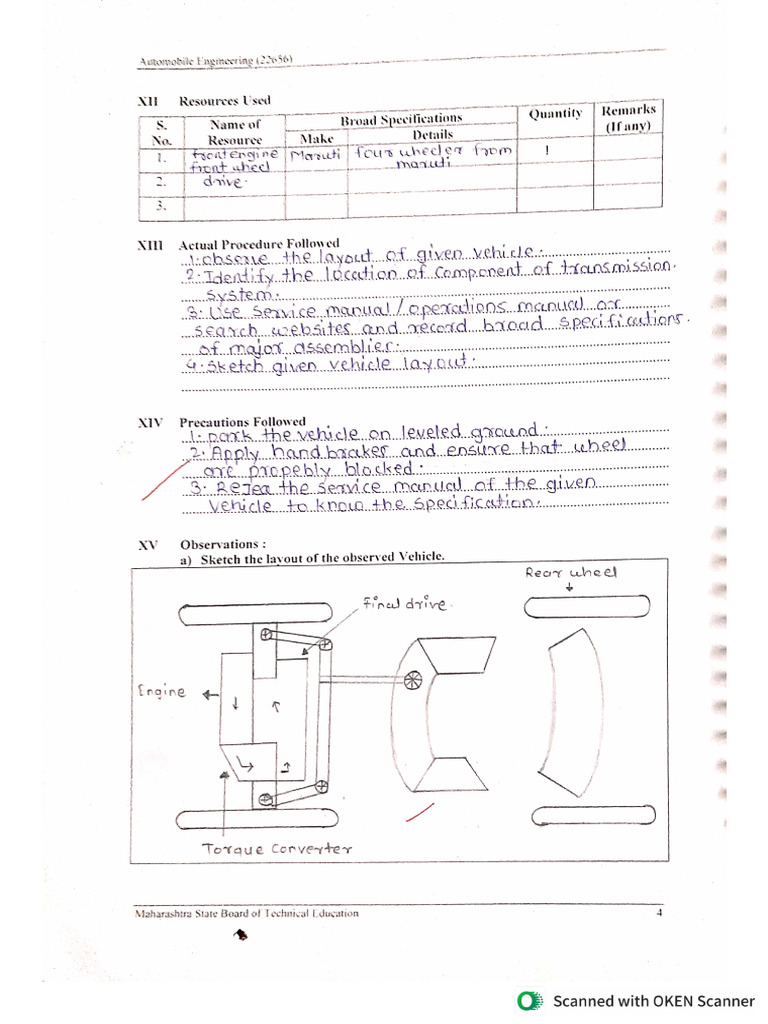 Automobile Engineering (22656)
XII Resources Used
S. No. Name of Resource Broad Specifications Quantity Remarks (If any)
Make Details
1. front engine Maruti four wheeler from 1
front wheel maruti
2. drive.
3.
XIII Actual Procedure Followed
1. observe the layout of given vehicle.
2. Identify the location of component of transmission.
system.
3. Use service manual/operations manual or
search websites and record broad specifications.
of major assemblier.
4. sketch given vehicle layout.
XIV Precautions Followed
1. park the vehicle on leveled ground.
2. Apply handbraker and ensure that wheel
are propebly blocked.
3. the service manual of the given
vehicle to know the specification.
XV Observations :
a) Sketch the layout of the observed Vehicle.
Rear wheel
Final drive.
Engine
Torque Converter
Maharashtra State Board of Technical Education 4
Scanned with OKEN Scanner